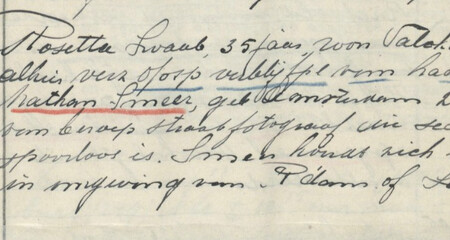 Rosetta Swaab, 35 jaar, won Valck
alhier, verz ofosp verblijfpl van haa
Nathan Smeer, geb Amsterdam
van beroep straatfotograaf die se
spoorloos is. Smeer houdt zich
in omgeving van A'dam of